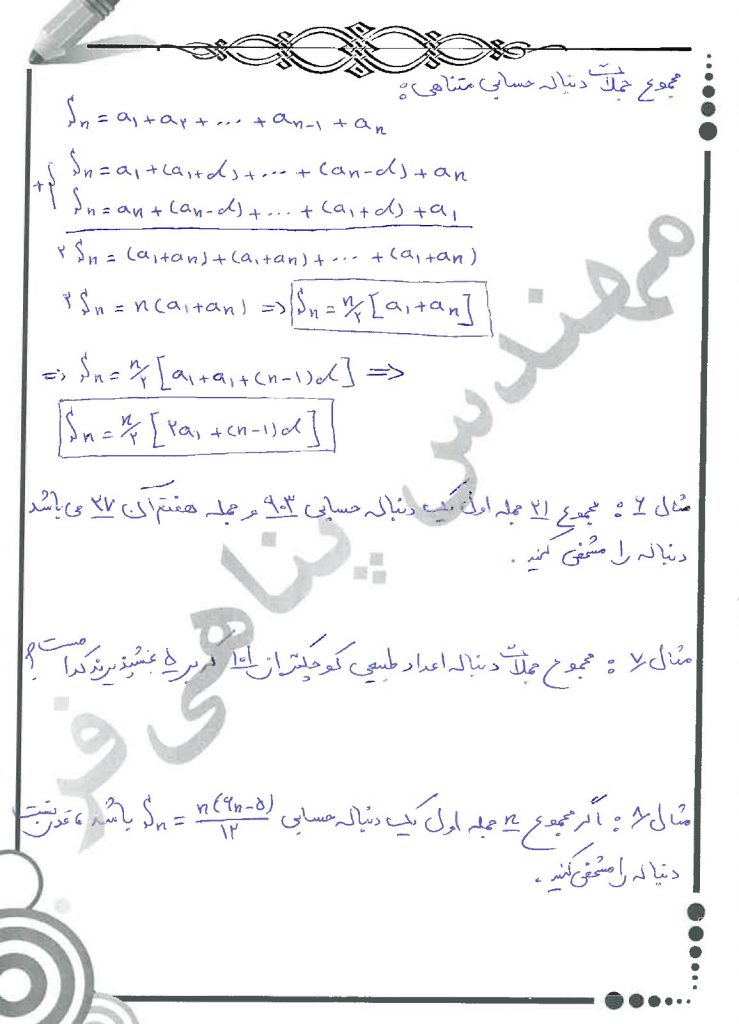 مجموع جملات دنباله حسابی متناهی:
Sₙ = a₁ + a₂ + ... + aₙ₋₁ + aₙ
+ { Sₙ = a₁ + (a₁+d) + ... + (aₙ-d) + aₙ
Sₙ = aₙ + (aₙ-d) + ... + (a₁+d) + a₁
۲Sₙ = (a₁+aₙ) + (a₁+aₙ) + ... + (a₁+aₙ)
۲Sₙ = n(a₁+aₙ) => Sₙ = n/۲ [a₁+aₙ]
=> Sₙ = n/۲ [a₁+a₁+(n-1)d] =>
Sₙ = n/۲ [۲a₁+(n-1)d]
مثال ۶: مجموع ۲۱ جمله اول یک دنباله حسابی ۹۰۳ و جمله هفتم آن ۲۷ می باشد
دنباله را مشخص کنید.
مثال ۷: مجموع جملات دنباله اعداد طبیعی کوچکتر از ۱۰۱ که بر ۵ بخشپذیرند کدامست؟
مثال ۸: اگر مجموع n جمله اول یک دنباله حسابی Sₙ = n(9n-۵)/۱۲ باشد، قدرنسبت
دنباله را مشخص کنید.
مهندس پناهی فر